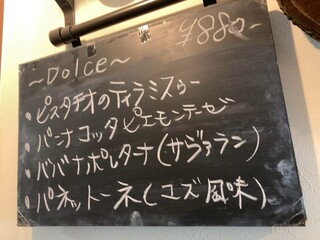 ~Dolce~ ¥880-
・ピスタチオのティラミスゥー
・パーナコッタピエモンテーゼ
・ババナポレターナ(サヴァラン)
・パネットーネ(ユズ風味)